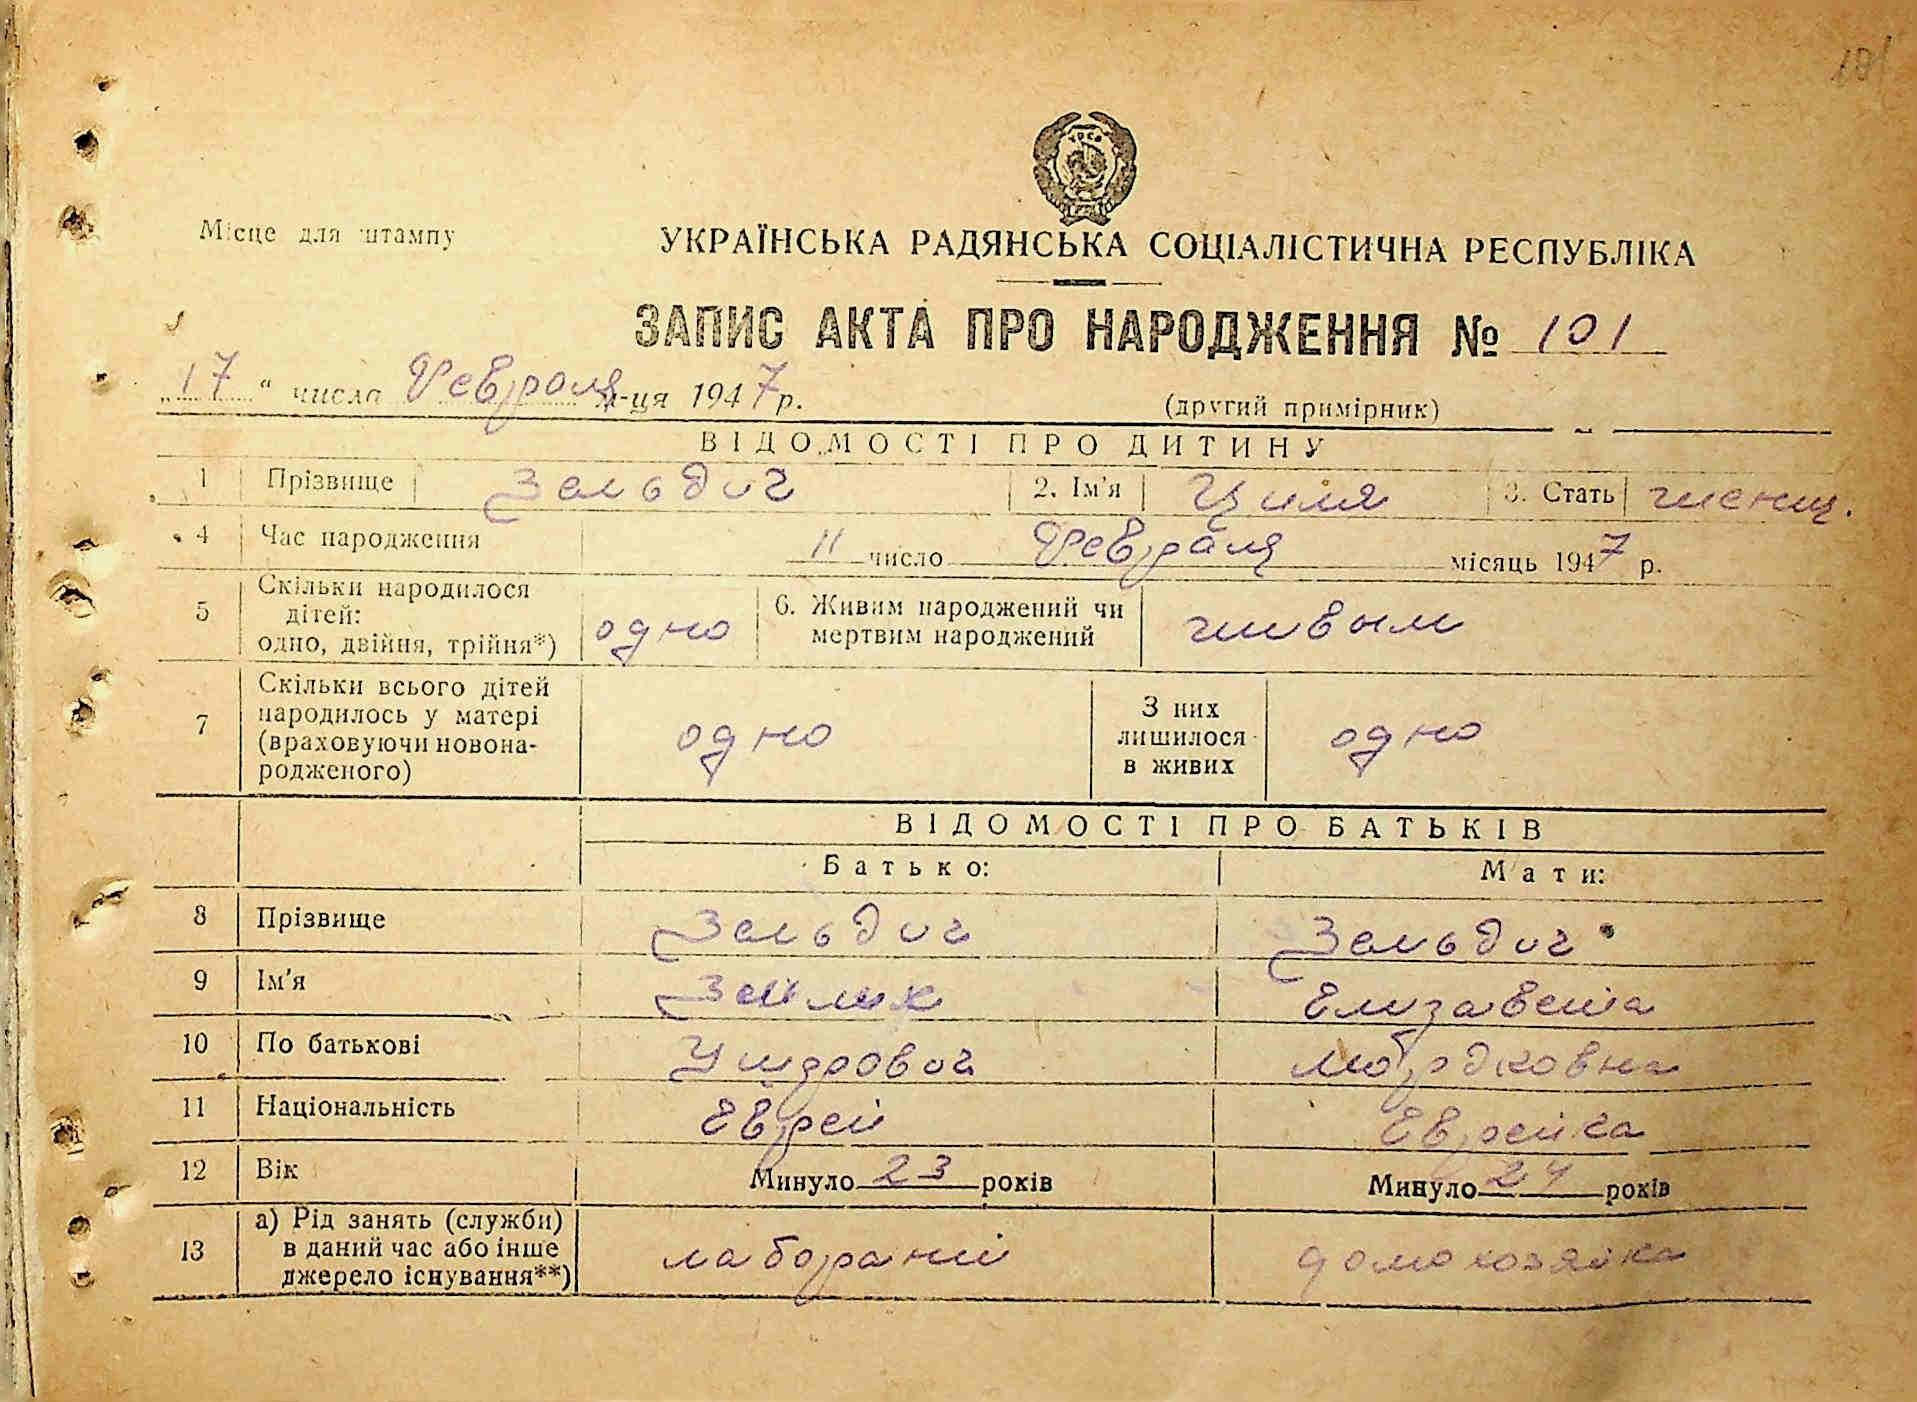 181
УРСР
Місце для штампу
УКРАЇНСЬКА РАДЯНСЬКА СОЦІАЛІСТИЧНА РЕСПУБЛІКА
ЗАПИС АКТА ПРО НАРОДЖЕННЯ № 101
„17“ числа Февраля м-ця 1947 р.
(другий примірник)
ВІДОМОСТІ ПРО ДИТИНУ
1 Прізвище Зельдич 2. Ім'я Циля 3. Стать женщ.
4 Час народження 11 число Февраля місяць 1947 р.
5 Скільки народилося
дітей:
одно, двійня, трійня*) одно
6. Живим народжений чи
мертвим народжений живым
7 Скільки всього дітей
народилось у матері
(враховуючи новона-
родженого) одно
З них
лишилося
в живих одно
ВІДОМОСТІ ПРО БАТЬКІВ
Батько: Мати:
8 Прізвище Зельдич Зельдич
9 Ім'я Зейлик Елизавета
10 По батькові Мордковна
11 Національність Еврей Еврейка
12 Вік Минуло 23 років Минуло 24 років
13 а) Рід занять (служби)
в даний час або інше
джерело існування**) лаборант домохозяйка